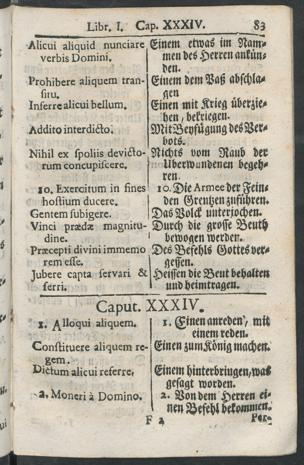 Libr. I. Cap. XXXIV. 83
Alicui aliquid nunciare
verbis Domini.
Einem etwas im Nam-
men des Herren ankün-
den.
Prohibere aliquem tran-
situ.
Einem dem Paß abschla-
gen
Inferre alicui bellum.
Einen mit Krieg überzie-
hen, bekriegen.
Addito interdicto.
Mit Beyfügung des Ver-
bots.
Nihil ex spoliis devicto-
rum concupiscere.
Nichts vom Raub der
Uberwundenen begeh-
ren.
10. Exercitum in fines
hostium ducere.
10. Die Armee der Fein-
den Grentzen zuführen.
Gentem subigere.
Das Volck unterjochen.
Vinci prædæ magnitu-
dine.
Durch die grosse Beuth
bewogen werden.
Præcepti divini immemo
rem esse.
Des Befehls Gottes ver-
gessen.
Jubere capta servari &
ferri.
Heissen die Beut behalten
und heimtragen.
Caput. XXXIV.
1. Alloqui aliquem.
1. Einen anreden, mit
einem reden.
Constituere aliquem re-
gem.
Einen zum König machen.
Dictum alicui referre.
Einem hinterbringen, was
gesagt worden.
2. Moneri à Domino.
2. Von dem Herren ei-
nen Befehl bekommen.
F 2 Per-